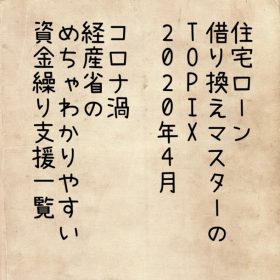 住宅ローン
借り換えマスターの
TOPIX
2020年4月
コロナ渦
経産省の
めちゃわかりやすい
資金繰り支援一覧